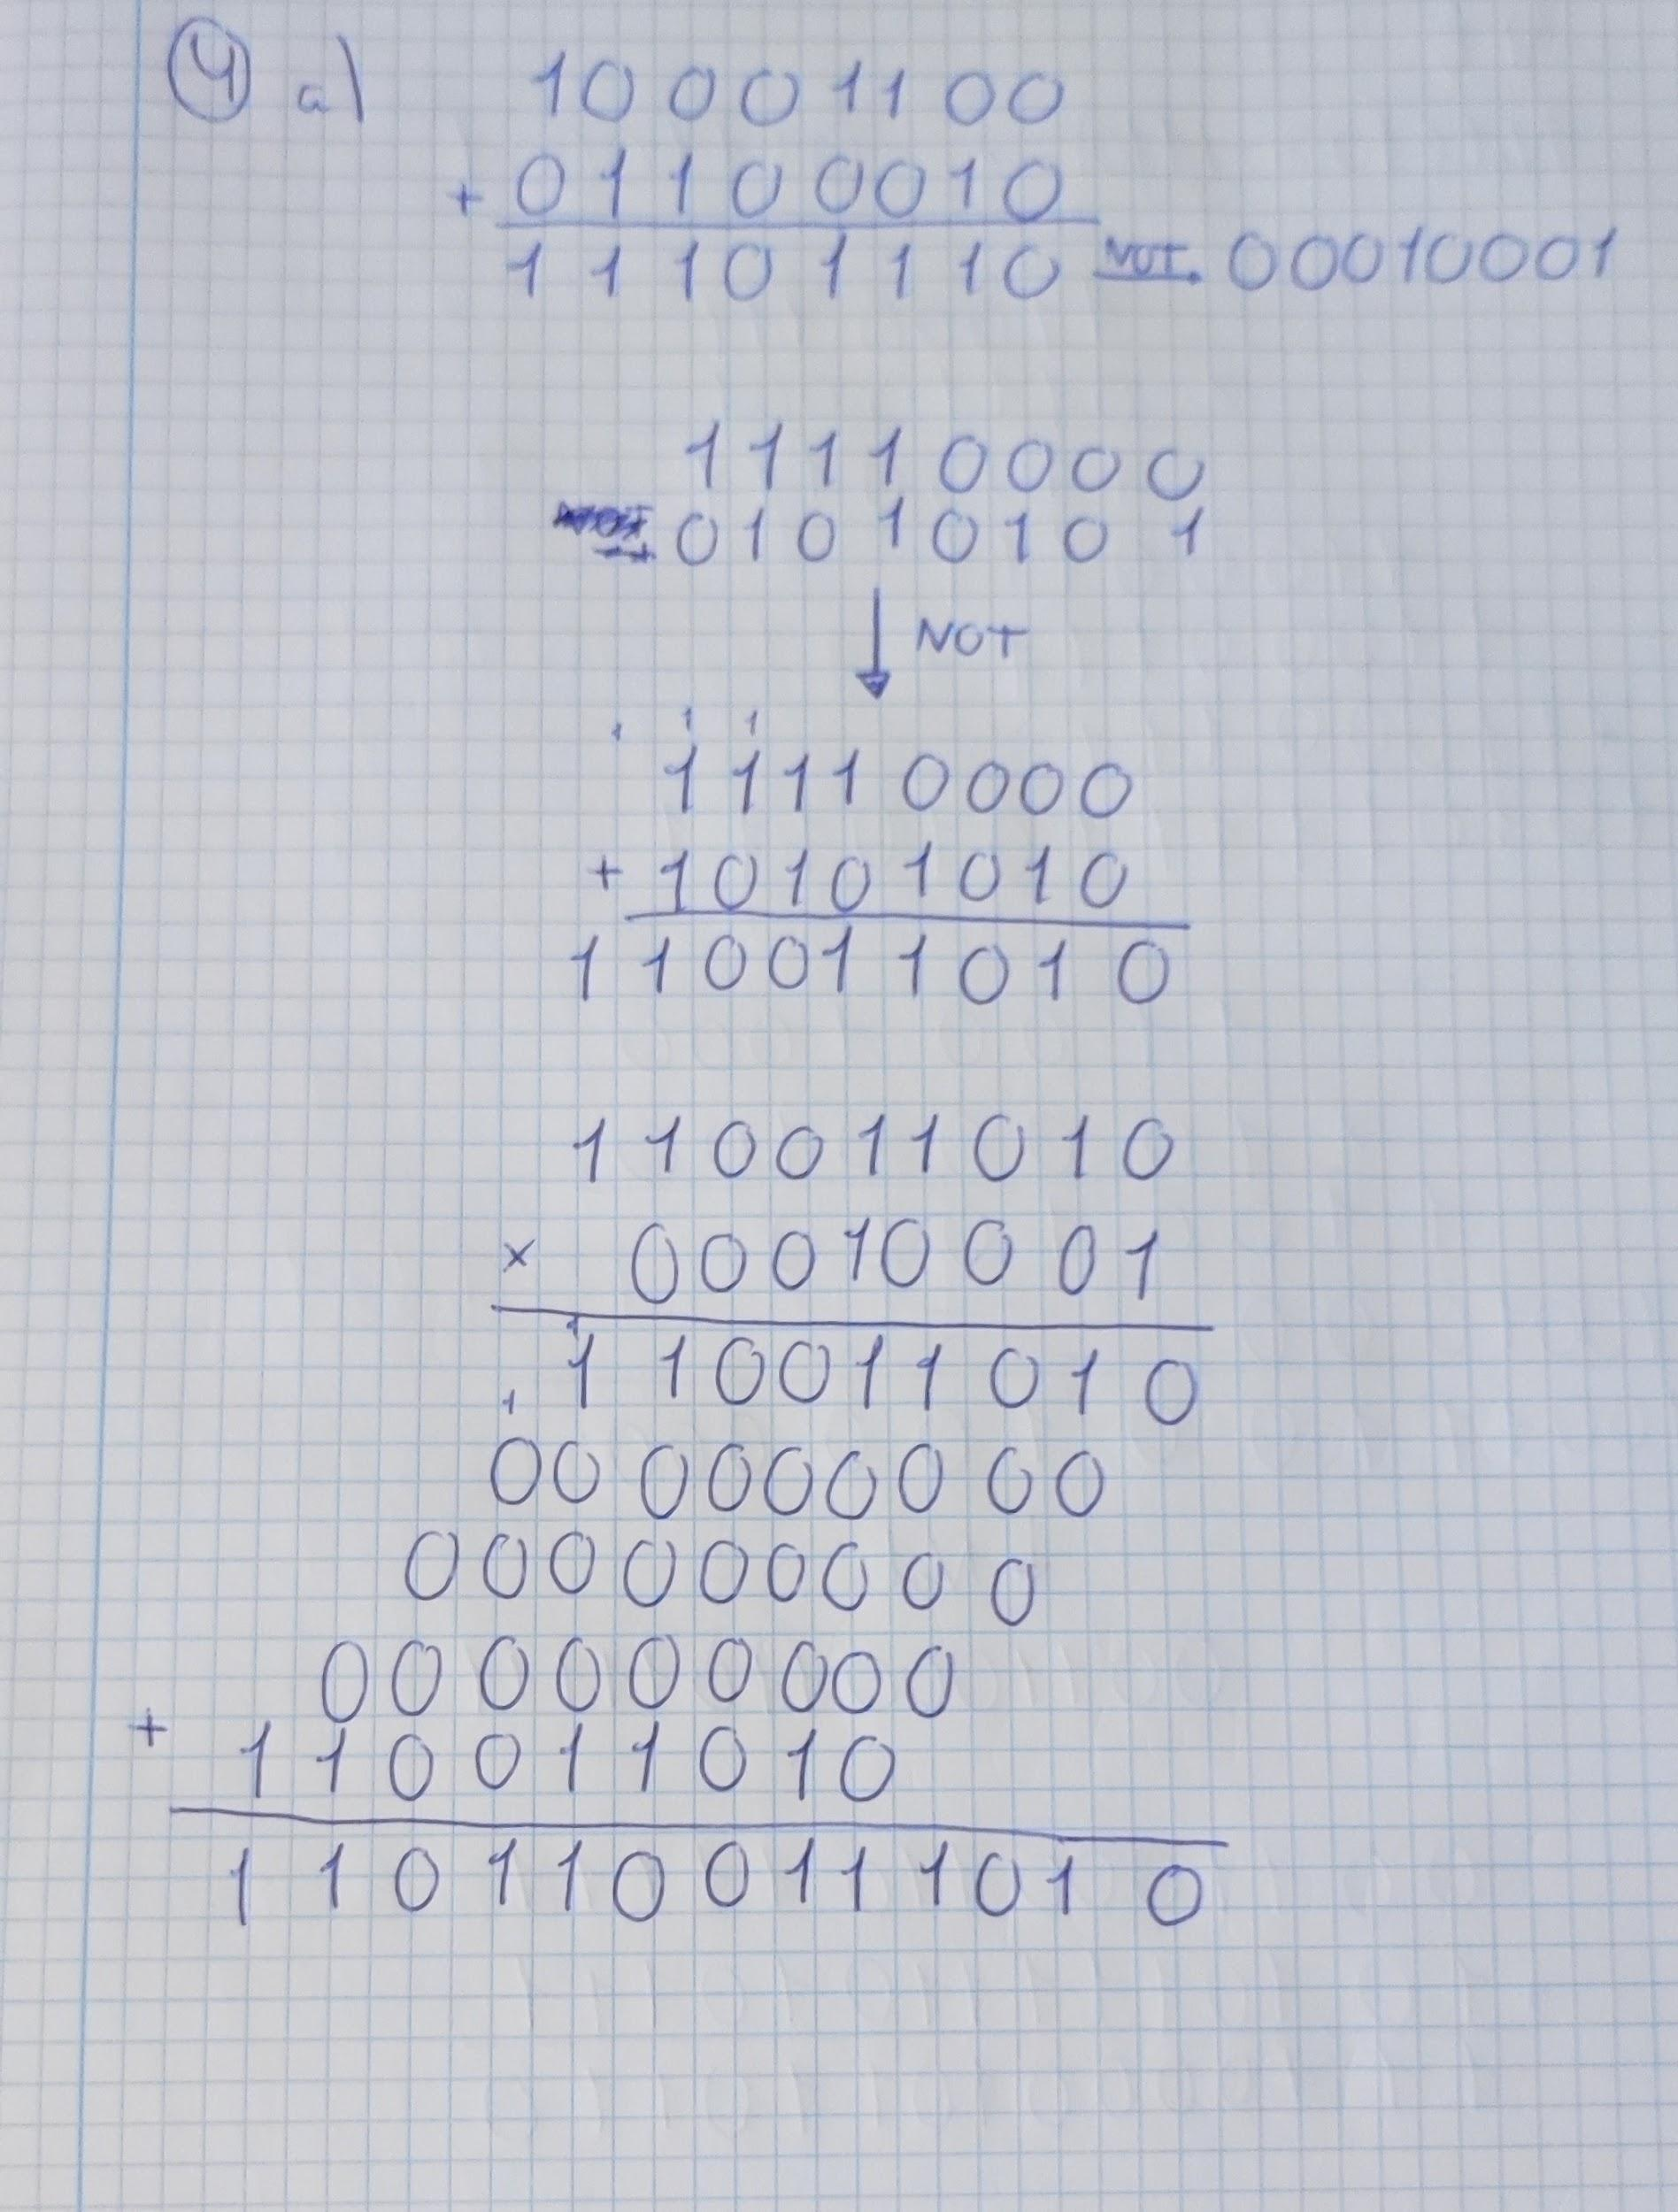 4 a) 10001100
+ 01100010
11101110 NOT 00010001
11110000
+ 01010101
NOT
1 1 1
11110000
+ 10101010
110011010
110011010
× 00010001
1
110011010
1
000000000
000000000
000000000
+
110011010
1101100111010